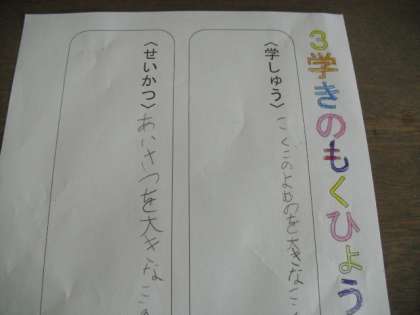 3学きのもくひょう
〈学しゅう〉
こくごのよみを大きなこ
〈せいかつ〉
あいさつを大きなこ